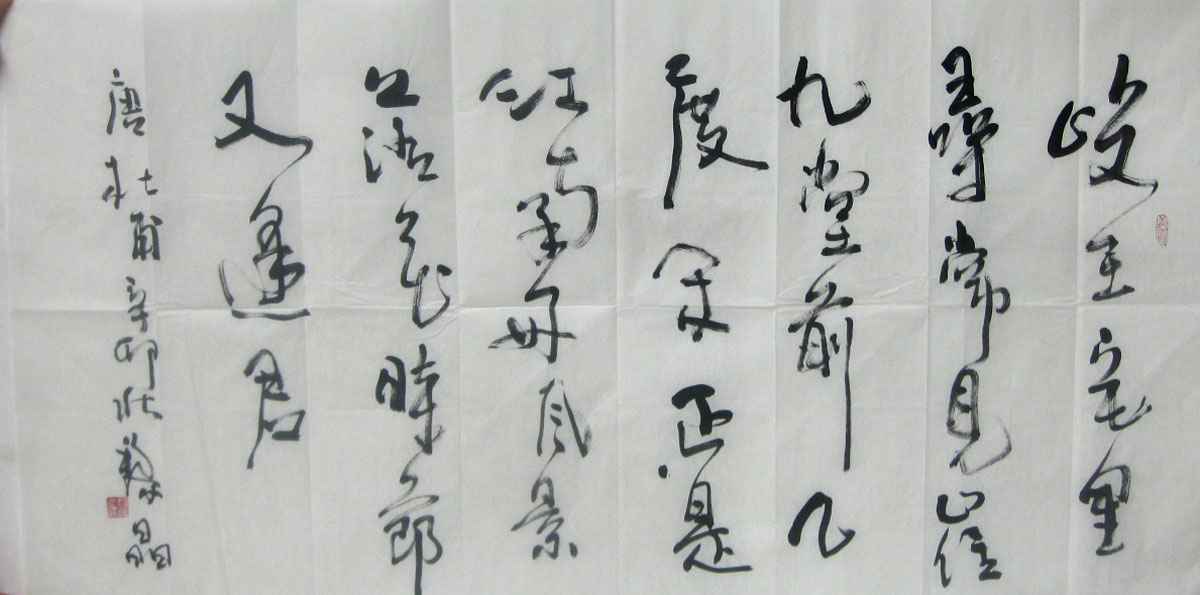 岐王宅里
尋常見崔
九堂前几
度闻正是
江南好風景
落花時節
又逢君
唐杜甫辛卯黎晶